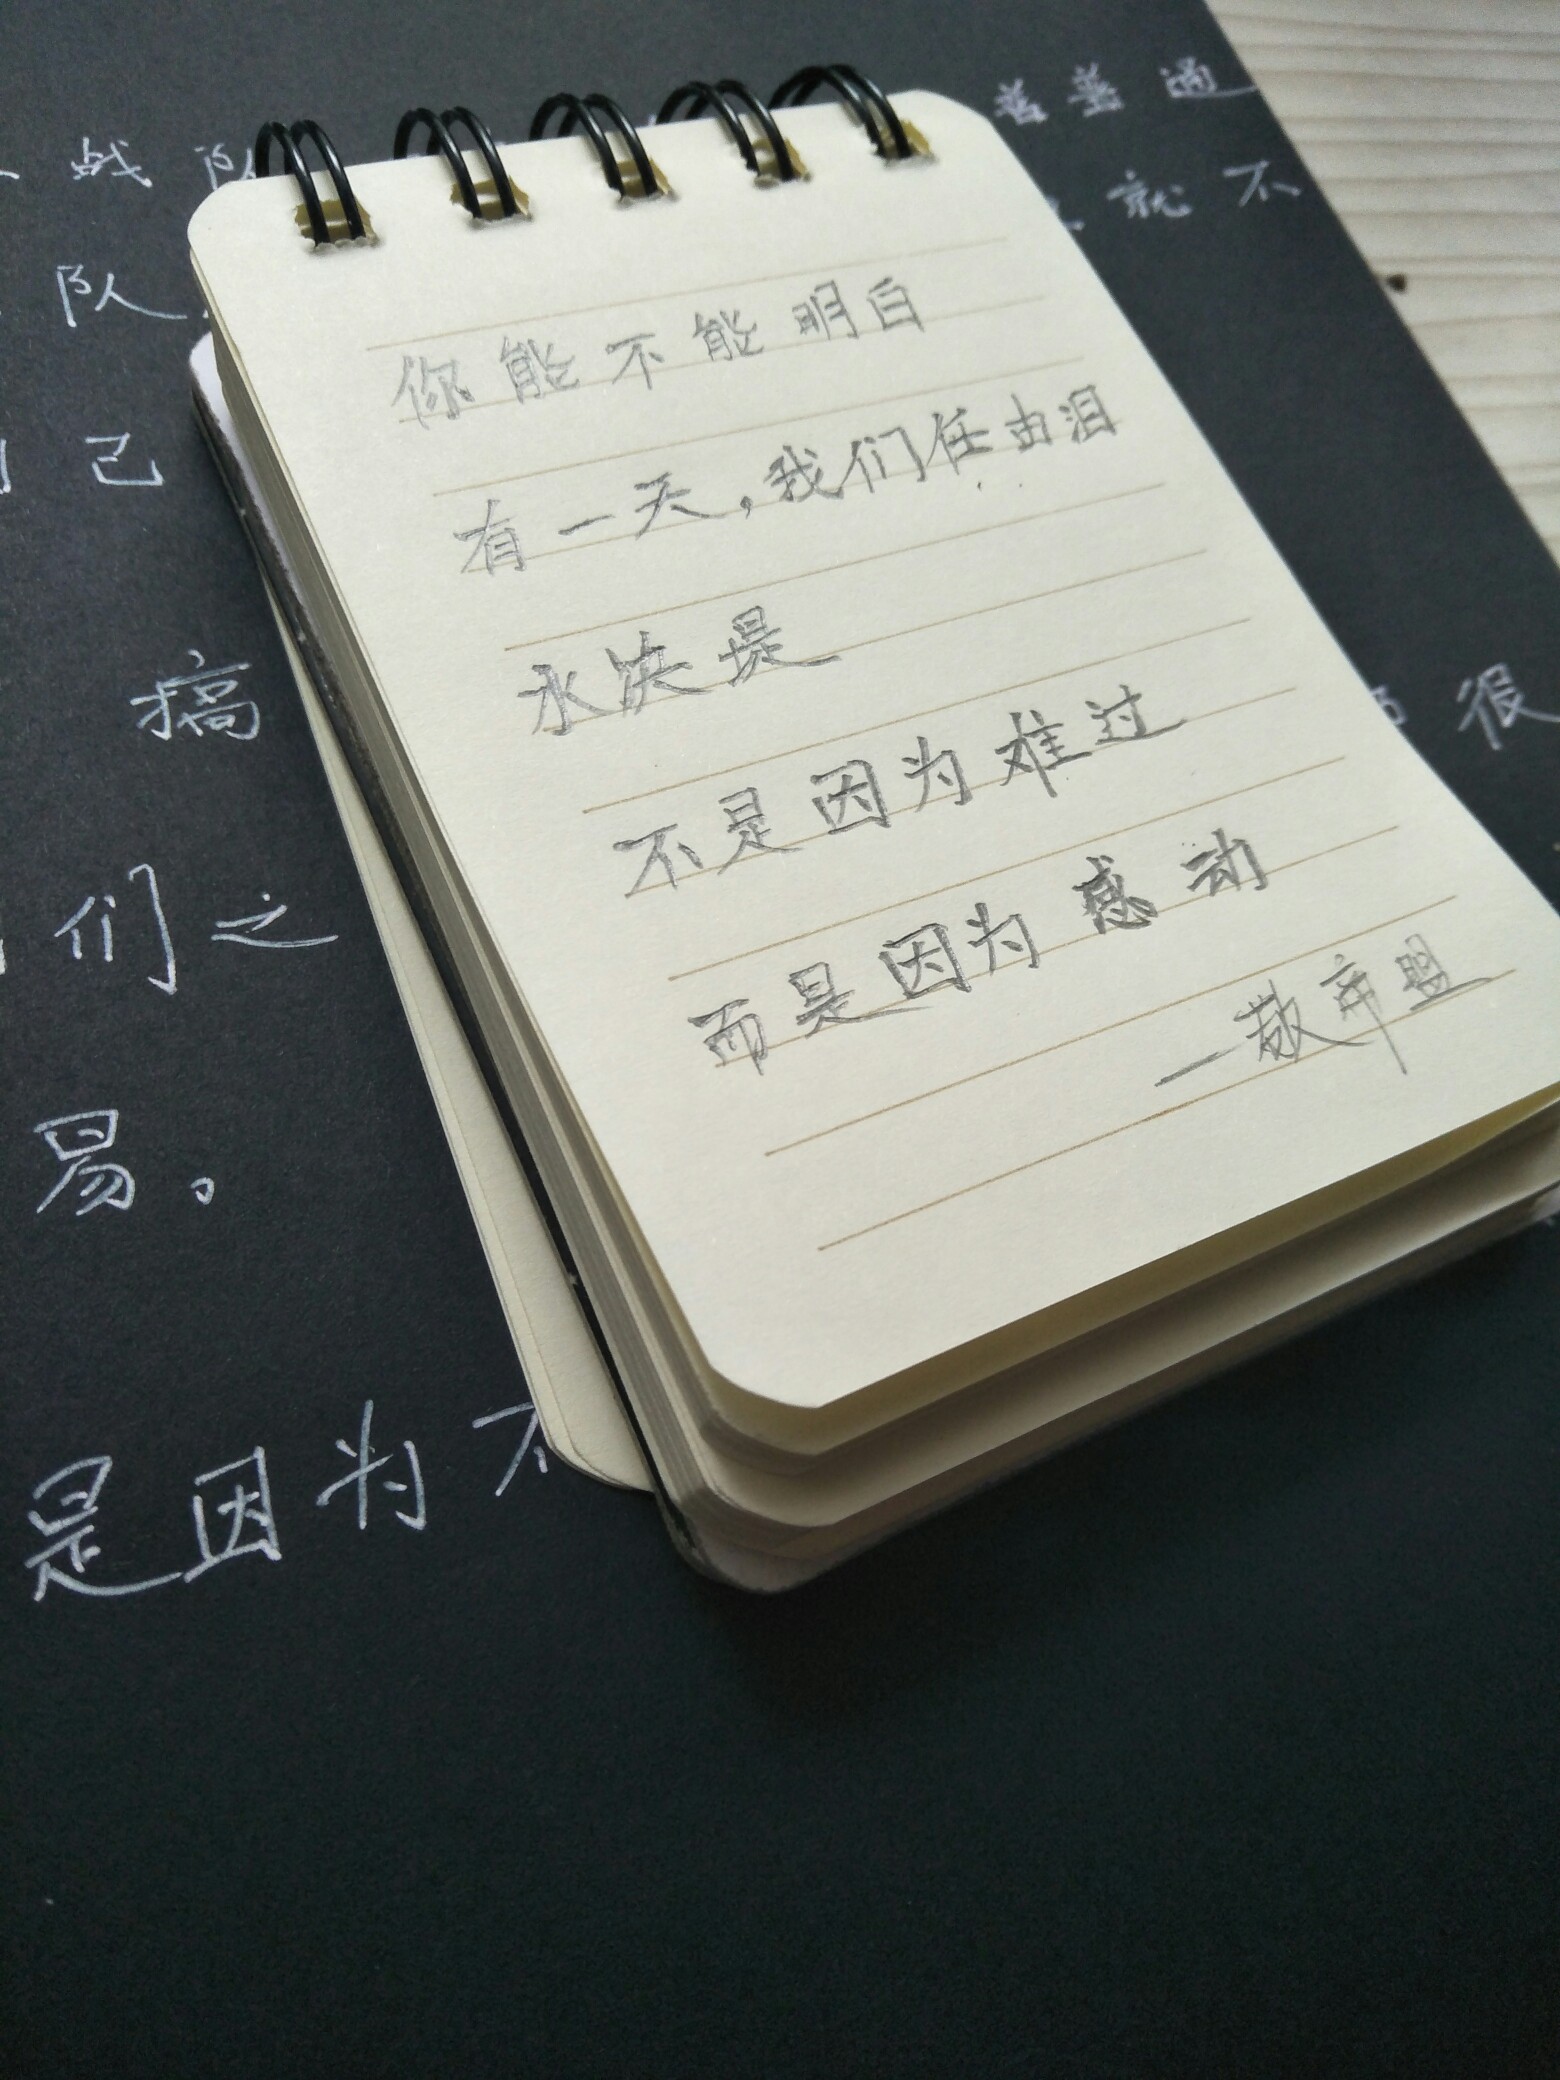 战队
普普通
就不
队
己
搞
很
们之
易。
是因为不
你能不能明白
有一天，我们任由泪
水决堤
不是因为难过
而是因为感动
—敬弃盟